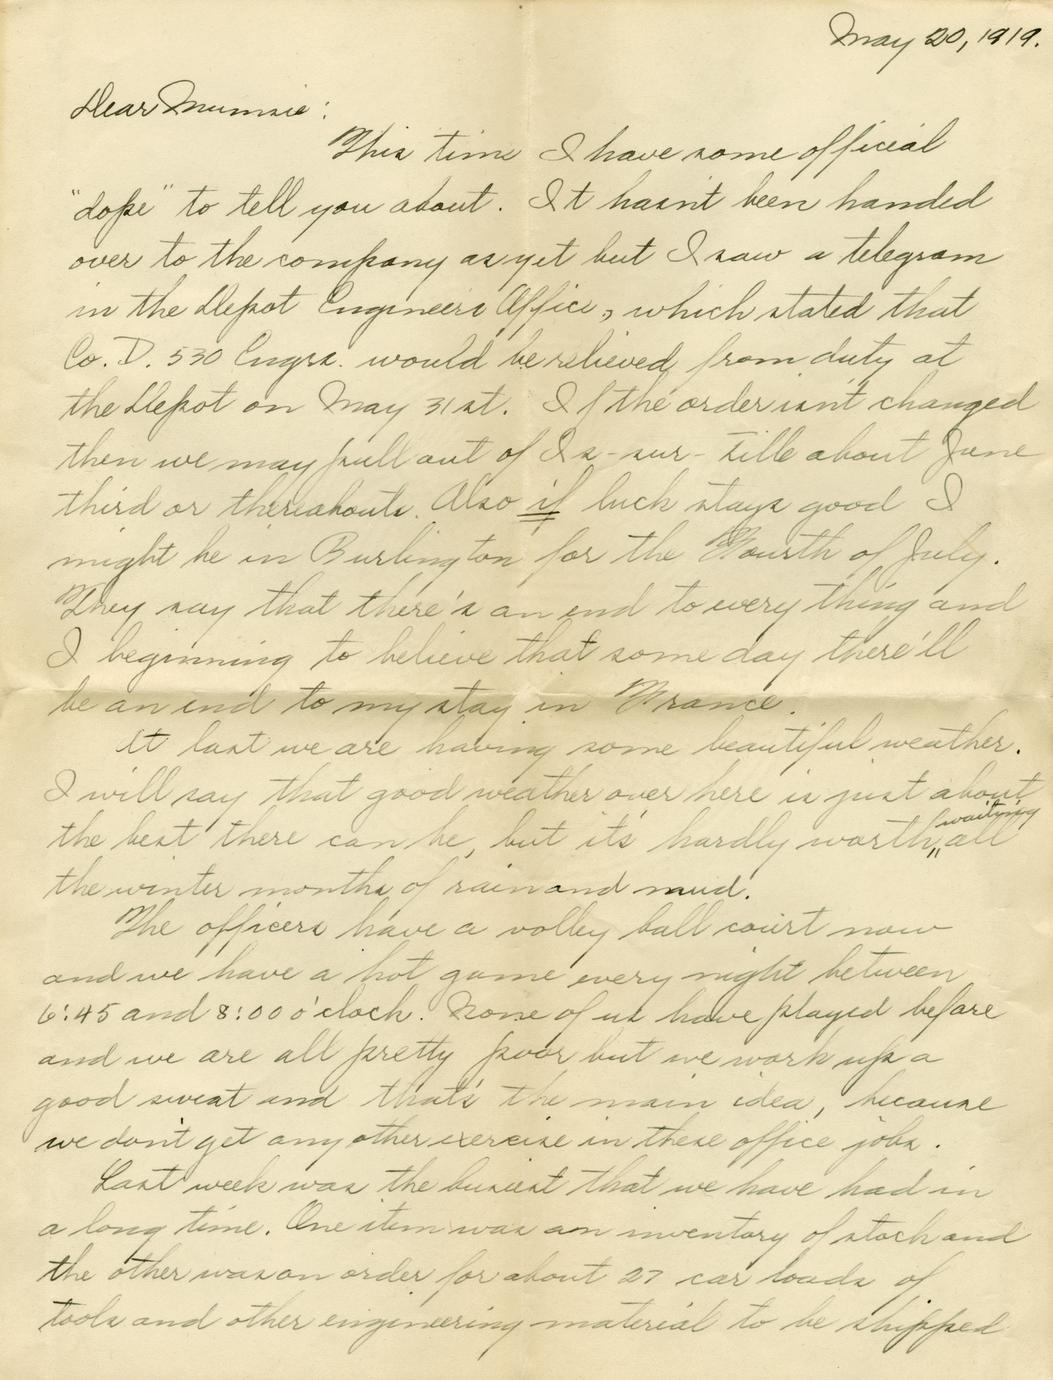 May 20, 1919.
Dear Mumsie:
This time I have some official
"dope" to tell you about. It hasn't been handed
over to the company as yet but I saw a telegram
in the Depot Engineers Office, which stated that
Co. D. 530 Engrs. would be relieved from duty at
the Depot on May 31st. If the order isn't changed
then we may pull out of Is-sur-Tille about June
third or thereabouts. Also if luck stays good I
might be in Burlington for the Fourth of July.
They say that there's an end to every thing and
I beginning to believe that some day there'll
be an end to my stay in France.
At last we are having some beautiful weather.
I will say that good weather over here is just about
the best there can be, but it's hardly worth waiting all
the winter months of rain and mud.
The officers have a volley ball court now
and we have a hot game every night between
6:45 and 8:00 o'clock. None of us have played before
and we are all pretty poor but we work up a
good sweat and that's the main idea, because
we don't get any other exercise in these office jobs.
Last week was the busiest that we have had in
a long time. One item was an inventory of stock and
the other was an order for about 27 car loads of
tools and other engineering material to be shipped